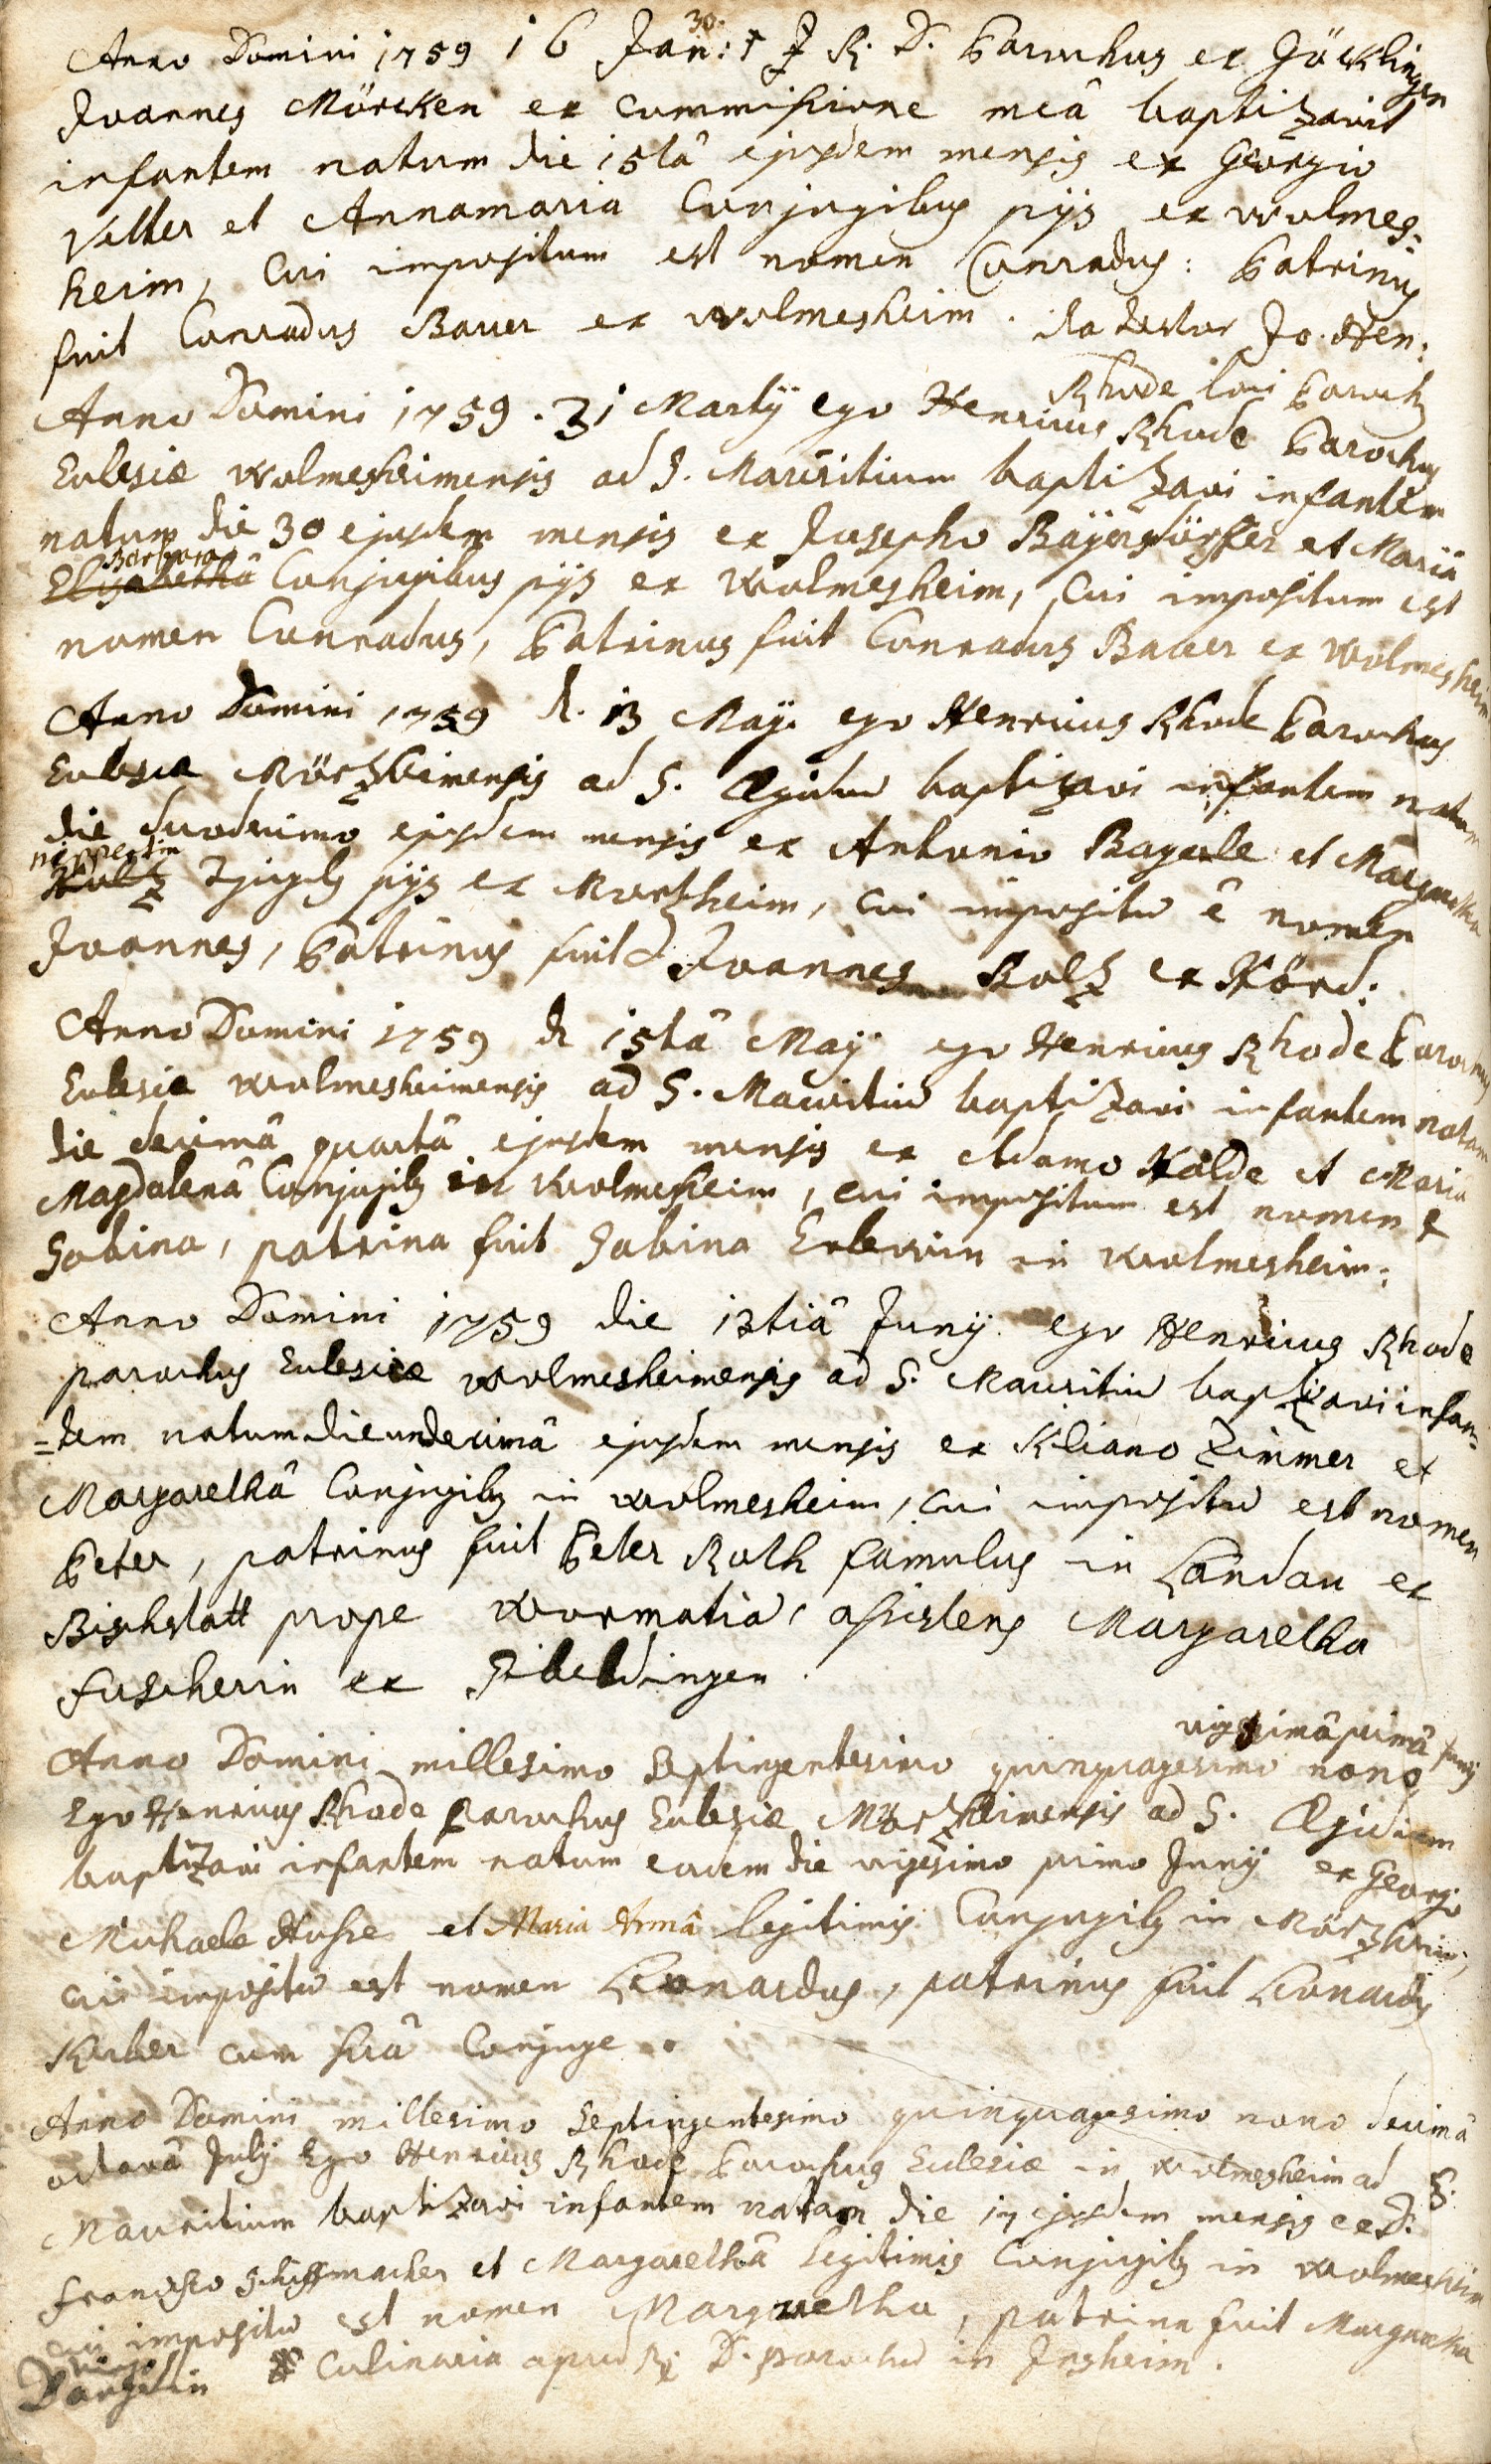 30.
Anno Domini 1759 16 Jan: † J R. D. Parochus ex Göcklingen
Joannes Mörcken ex commissione meâ baptizavit
infantem natum die 15tâ ejusdem mensis ex Georgio
Vetter et Annamaria Conjugibus pijs ex wolmes=
heim, Cui impositum est nomen Conradus: Patrinus
fuit Conradus Bauer ex wolmesheim. ita testor Jo. Hen:
Rhode loci Paroch9
Anno Domini 1759. 31 Martij ego Henricus Rhode Parochus
Eclesiæ wolmesheimensis ad S. Mauritium baptizavi infantem
natum die 30 ejusdem mensis ex Josepho Bayersdörffer et Mariâ
Barbara
Elisabethâ Conjugibus pijs ex Wolmesheim, Cui impositum est
nomen Conradus, Patrinus fuit Conradus Bauer ex wolmesheim
Anno Domini 1759 d. 13 Maij. ego Henricus Rhode Parochus
Eclesiæ Mörzheimensis ad S. Ægidiū baptizavi infantem natum
die duodecimo ejusdem mensis ex Antonio Bayerle et Margaretha
Conjugib9 pijs ex Mortzheim, cui impositū ê nomen
Joannes, Patrinus fuit Joannes Roltz ex Nörd:
Anno Domini 1759 d 15tâ Maij ego Henricus Rhode Parochus
Eclesiæ wolmesheimensis ad S. Mauritiū baptizavi infantem natam
die decimâ quartâ ejusdem mensis ex Adamo Nolde et Maria
Magdalenâ Conjugib9 in wolmesheim, cui impositum est nomen
Sabina, patrina fuit Sabina in wolmesheim:
Anno Domini 1759 die 13tiâ Junij ego Henricus Rhode
parochus Eclesiæ wolmesheimensis ad S. Mauritiū baptizavi infan=
=tem natum die undecimâ ejusdem mensis ex Kiliano Zimmer et
Margarethâ Conjugib9 in wolmesheim, cui impositū est nomen
Peter, patrinus fuit Peter Roth famulus in Landau ex
Bischstatt prope wormatia, assistens Margaretha
fuscherin ex Sibeldingen.
vigesimâ primâ Junij
Anno Domini millesimo Septingentesimo quinquagesimo nono,
Ego Henricus Rhode Parochus Eclesiæ Mörzheimensis ad S. Ægidium
baptizavi infantem natum eadem die vigesimo primo Junij ex Georgio
Michaele Husse et Maria Annâ legitimis Conjugib9 in Mörzheim,
cui impositū est nomen Leonardus, patrinus fuit Leonardus
Kuber cum suâ Conjuge.
Anno Domini millesimo Septingentesimo quinquagesimo nono decimâ
octavâ Julij Ego Henricus Rhode Parochus Eclesiæ in wolmesheim ad S.
Mauritium baptizavi infantem natam die 17 ejusdem mensis ex D:
francisco Schiffmacher et Margarethâ legitimis Conjugib9 in wolmesheim
cui impositū est nomen Margaretha, patrina fuit Margaretha
Culinaria apud R. D. parochū in Insheim.